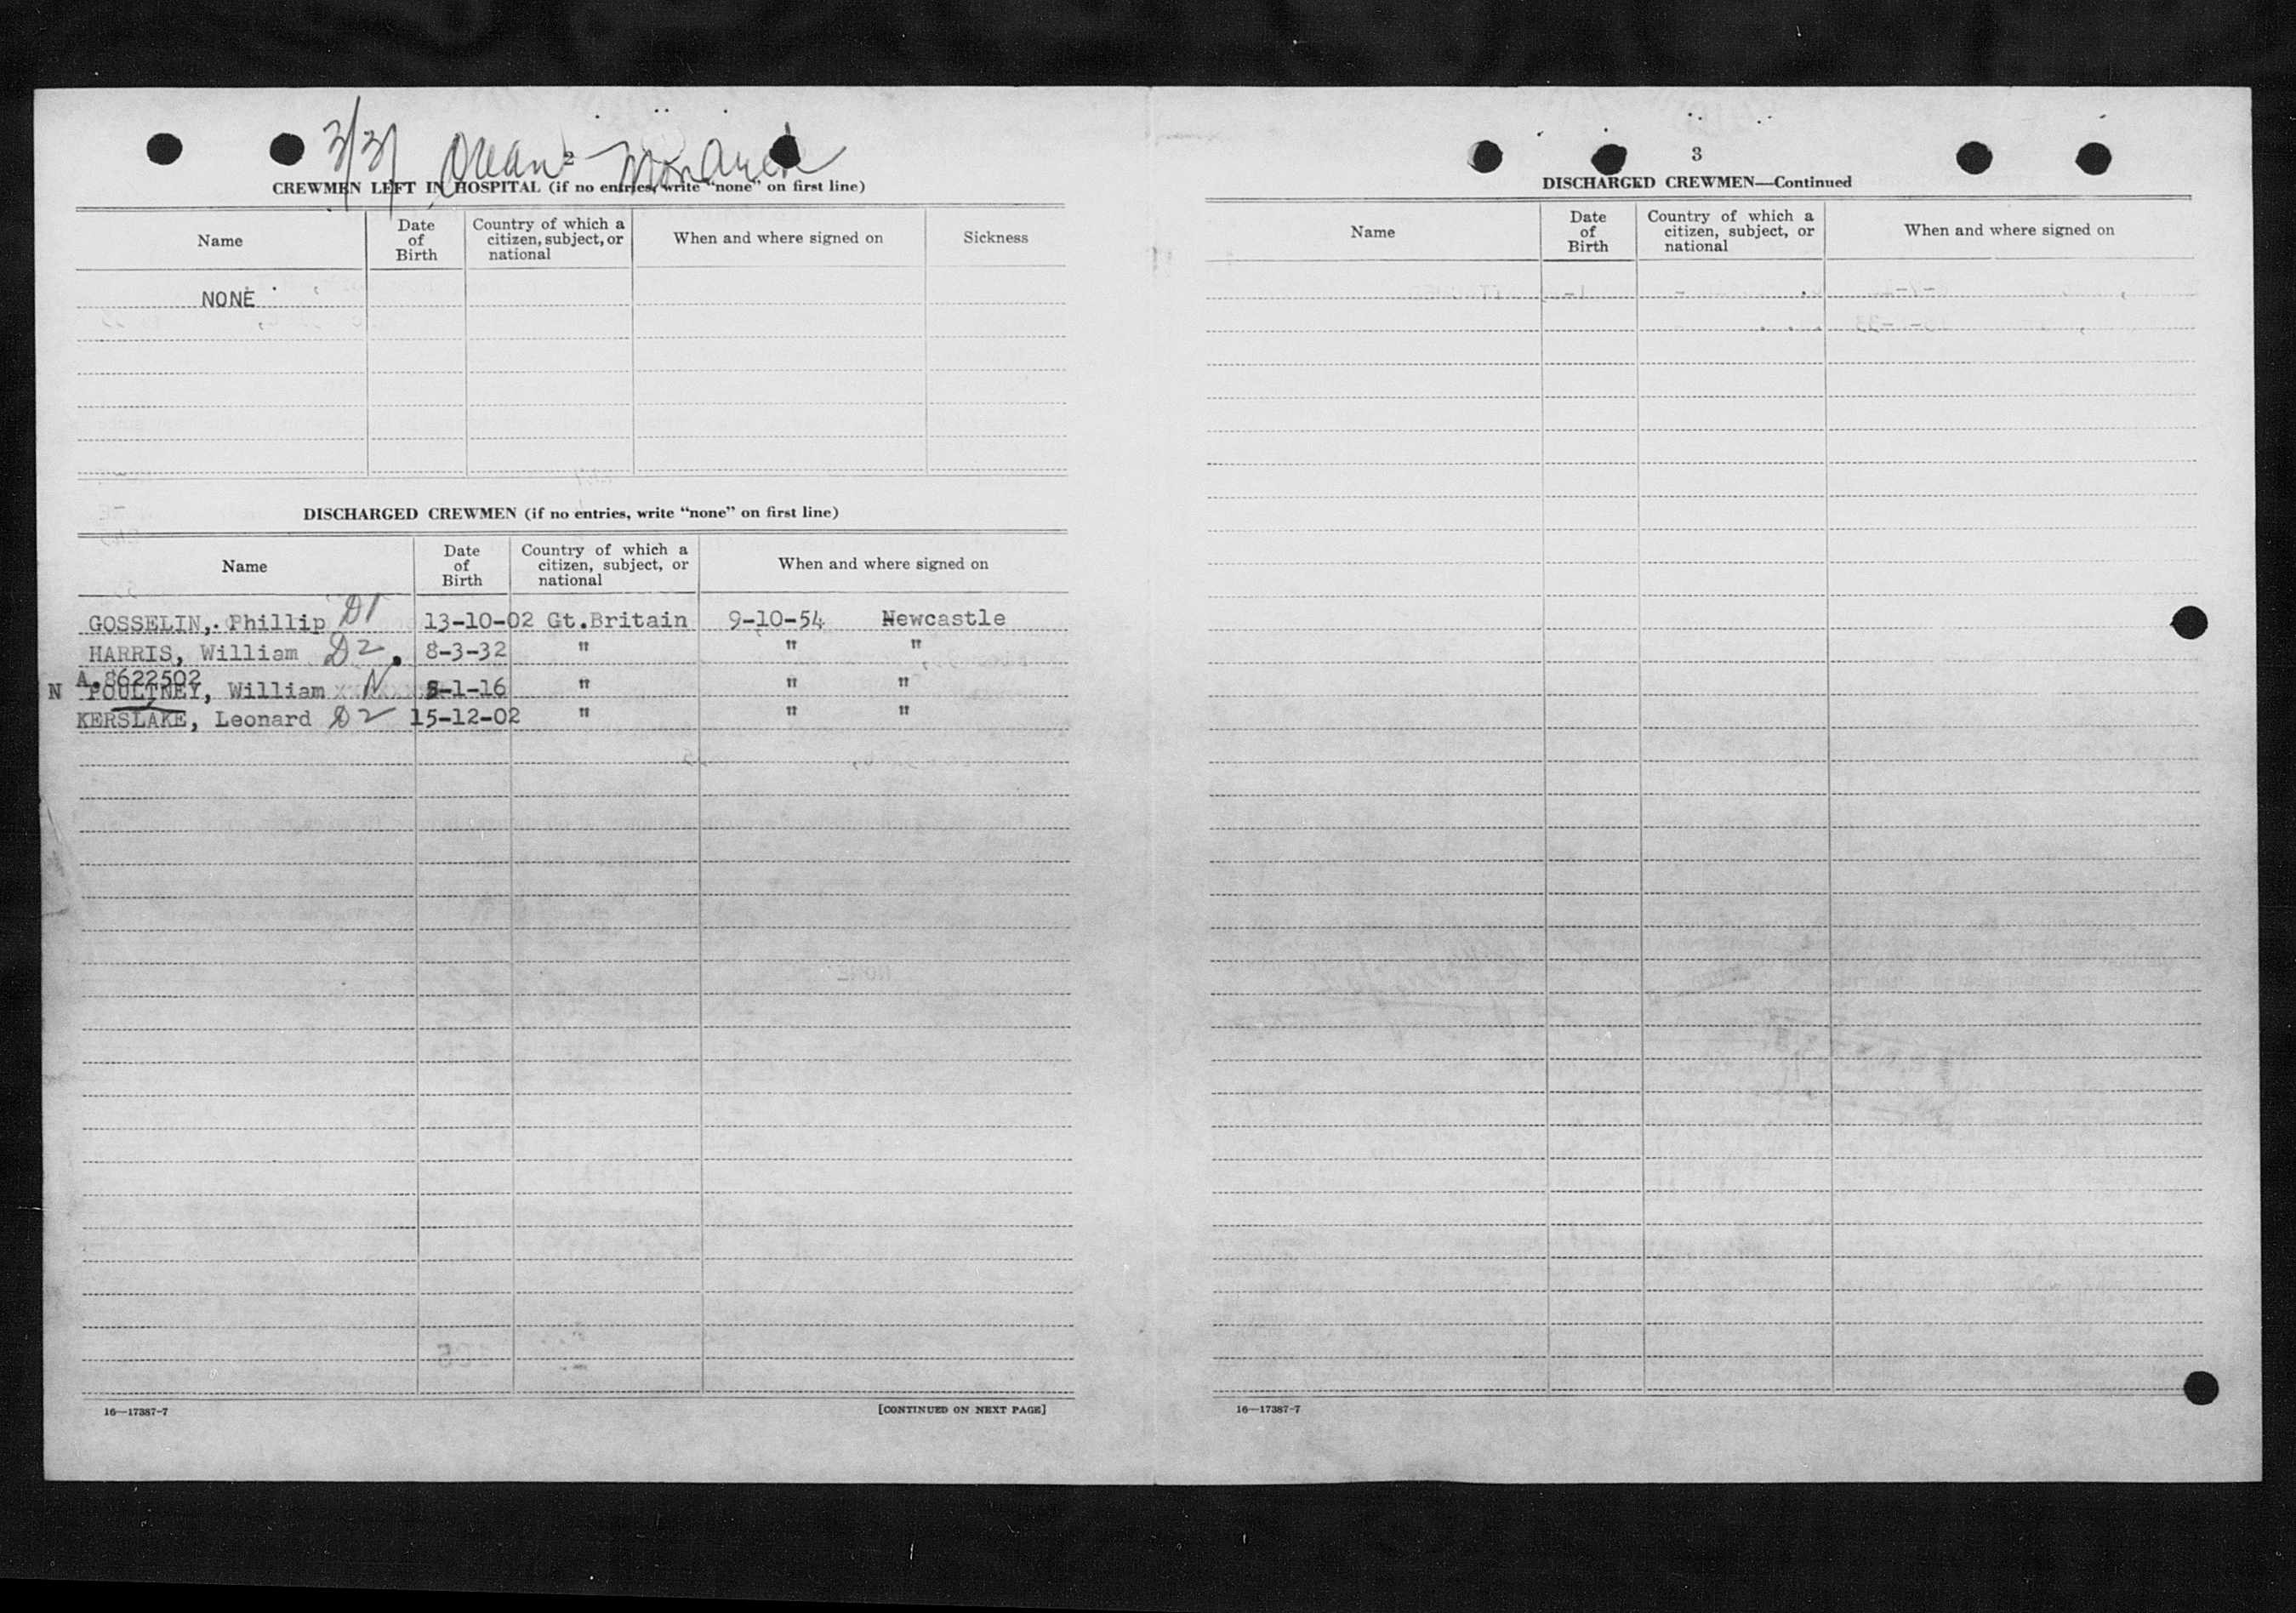 3/31 Ocean Monarch
2
CREWMEN LEFT IN HOSPITAL (if no entries, write "none" on first line)
Name Date of Birth Country of which a citizen, subject, or national When and where signed on Sickness
NONE
DISCHARGED CREWMEN (if no entries, write "none" on first line)
Name Date of Birth Country of which a citizen, subject, or national When and where signed on
GOSSELIN, Phillip D1 13-10-02 Gt.Britain 9-10-54 Newcastle
HARRIS, William D2 8-3-32 " " "
A.8622502
N POULTNEY, William N -1-16 " " "
KERSLAKE, Leonard D2 15-12-02 " " "
16—17387-7 [CONTINUED ON NEXT PAGE]
3
DISCHARGED CREWMEN—Continued
Name Date of Birth Country of which a citizen, subject, or national When and where signed on
16—17387-7